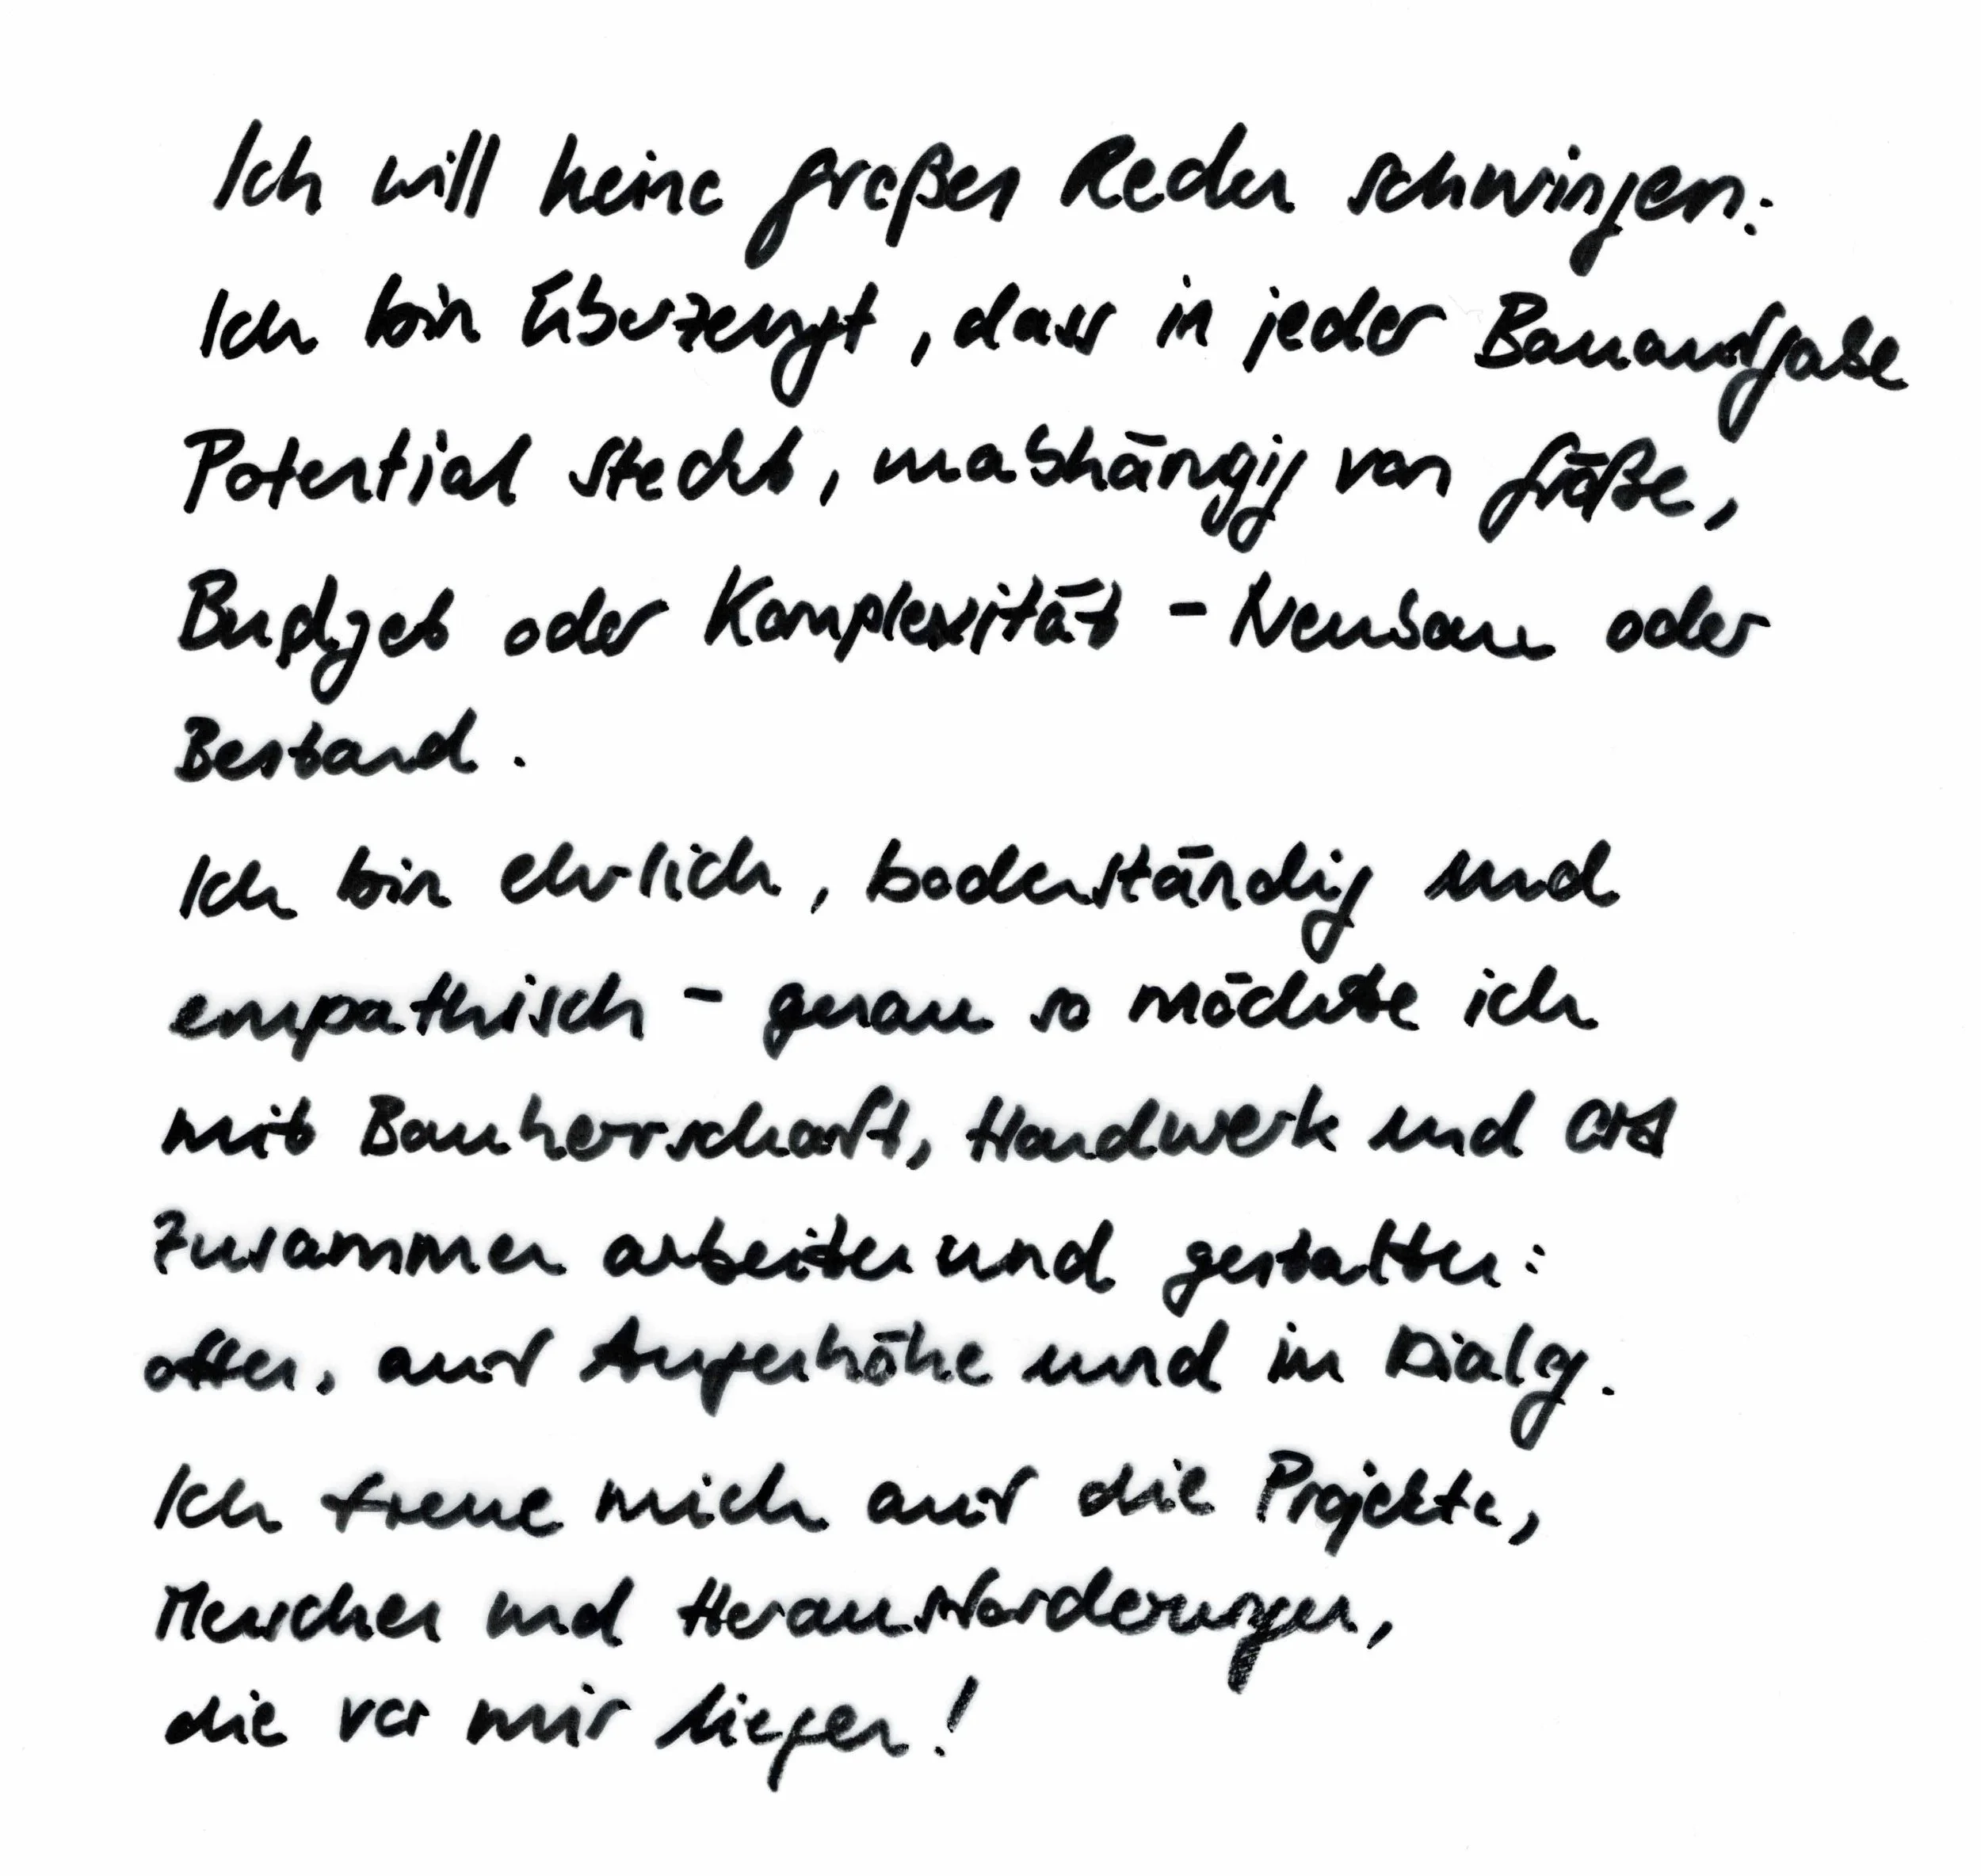 Ich will keine großen Reden schwingen:
Ich bin überzeugt, dass in jeder Bauaufgabe
Potential steckt, unabhängig von Größe,
Budget oder Komplexität - Neubau oder
Bestand.
Ich bin ehrlich, bodenständig und
empathisch - genau so möchte ich
mit Bauherrschaft, Handwerk und Ort
zusammen arbeiten und gestalten:
offen, auf Augenhöhe und im Dialog.
Ich freue mich auf die Projekte,
Menschen und Herausforderungen,
die vor mir liegen!